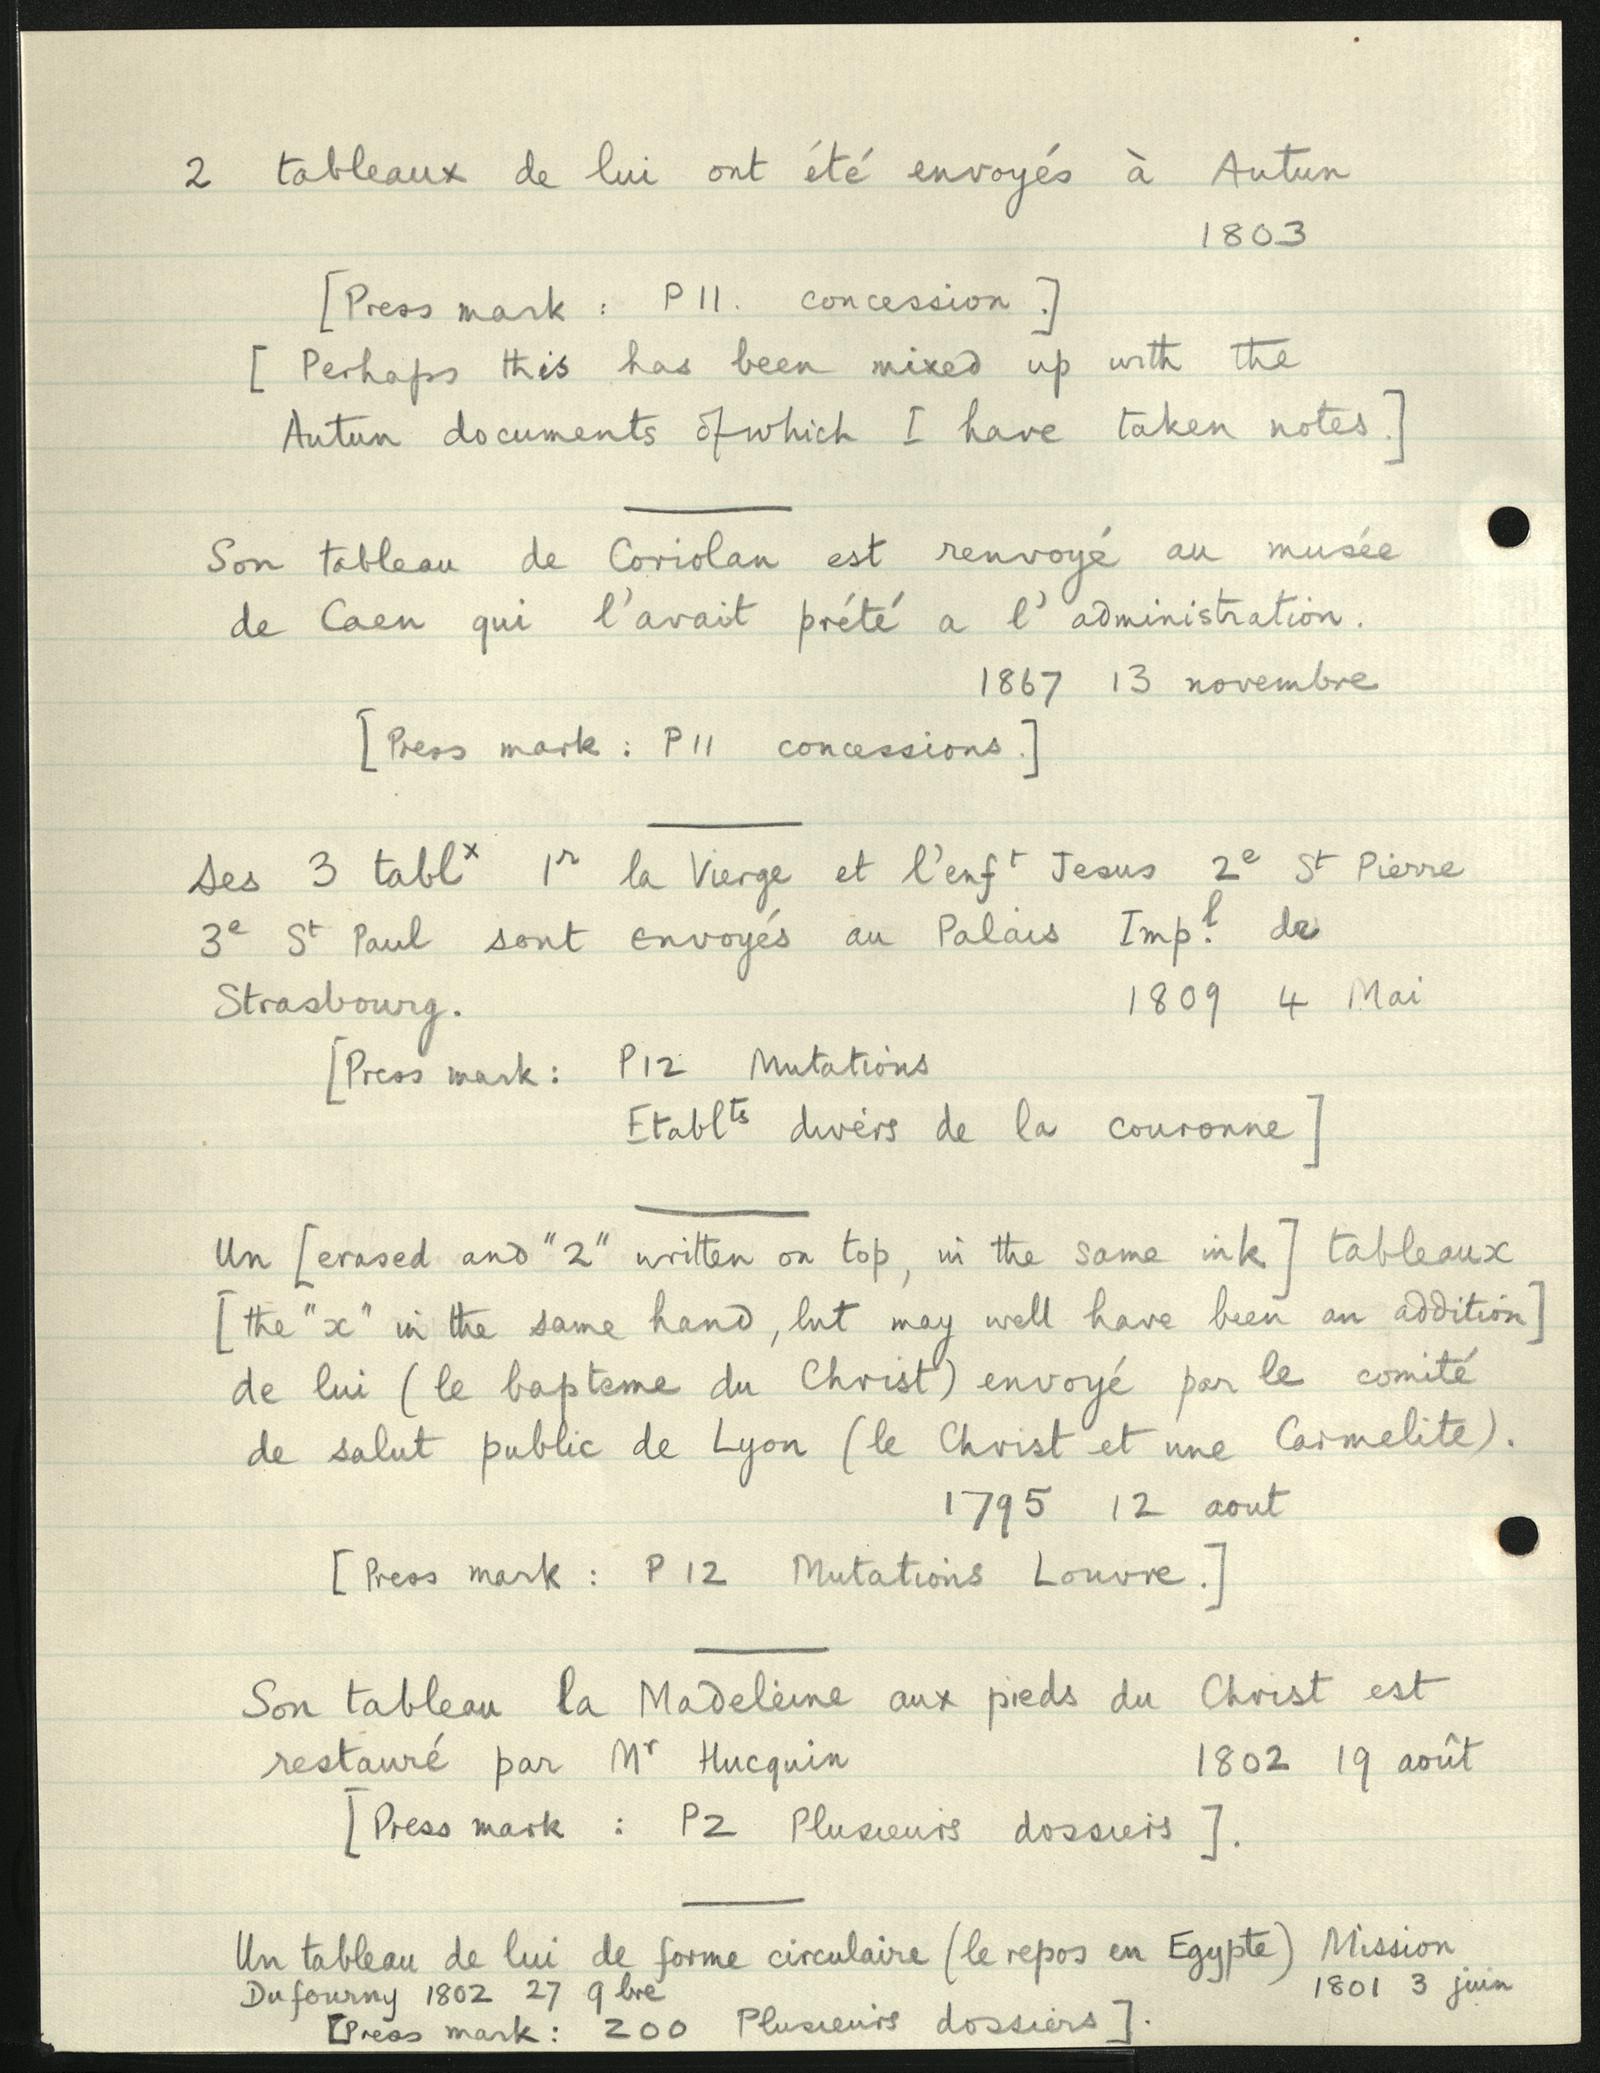 2 tableaux de lui ont été envoyés à Autun
1803
[Press mark : P 11. concession.]
[ Perhaps this has been mixed up with the
Autun documents of which I have taken notes.]
Son tableau de Coriolan est renvoyé au musée
de Caen qui l'avait prété a l'administration.
1867 13 novembre
[Press mark : P 11 concessions.]
Ses 3 tablx 1r la Vierge et l'enft Jesus 2e St Pierre
3e St Paul sont envoyés au Palais Imp.l de
Strasbourg. 1809 4 Mai
[Press mark : P12 Mutations
Etablts divers de la couronne]
Un [erased and "2" written on top, in the same ink] tableaux
[the "x" in the same hand, but may well have been an addition]
de lui (le bapteme du Christ) envoyé par le comité
de salut public de Lyon (le Christ et une Carmelite).
1795 12 aout
[Press mark : P 12 Mutations Louvre.]
Son tableau la Madeleine aux pieds du Christ est
restauré par Mr Hucquin 1802 19 août
[Press mark : P2 Plusieurs dossiers].
Un tableau de lui de forme circulaire (le repos en Egypte) Mission
Dufourny 1802 27 9bre 1801 3 juin
[Press mark : 200 Plusieurs dossiers].